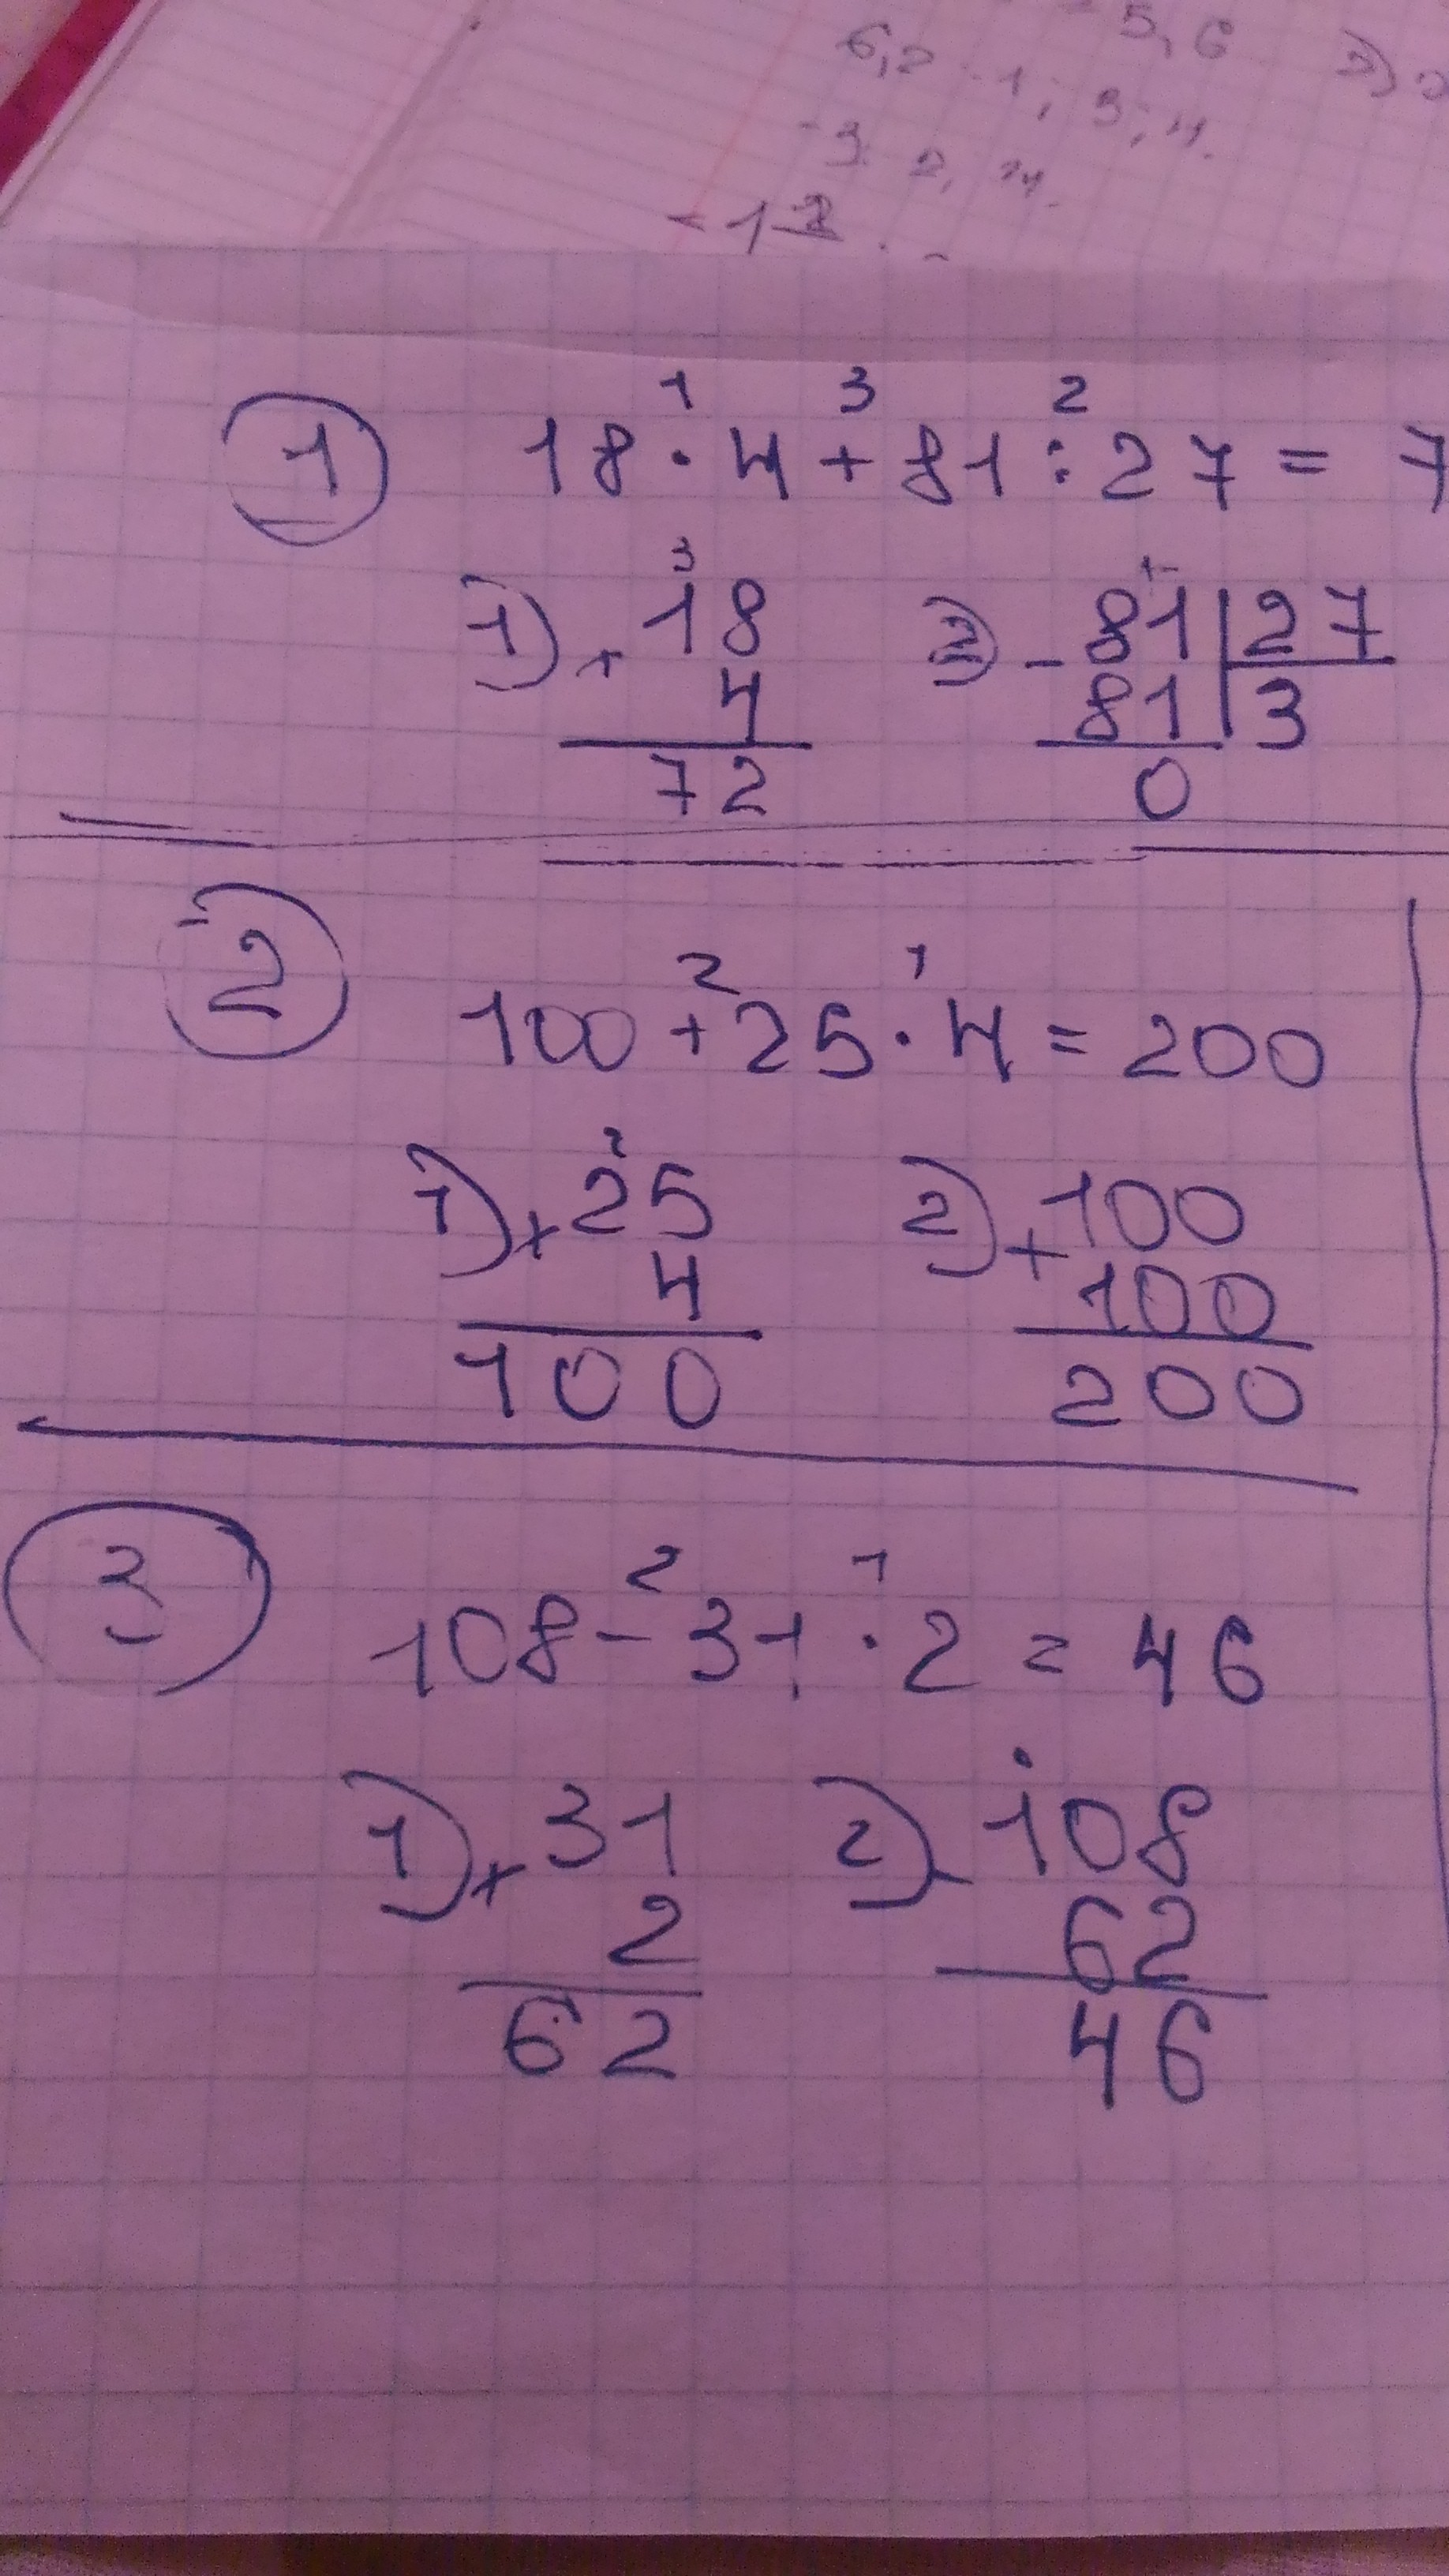 5, 6
6,2 -1; 3; 4.
1 3 2
① 18 · 4 + 81 : 27 = 7
3
1) × 18 2) - 81 | 27
4 81 | 3
72 0
2 1
② 100 + 25 · 4 = 200
2
1) × 25 2) + 100
4 100
100 200
2 1
③ 108 - 31 · 2 = 46
1) × 31 2) - 108
2 62
62 46